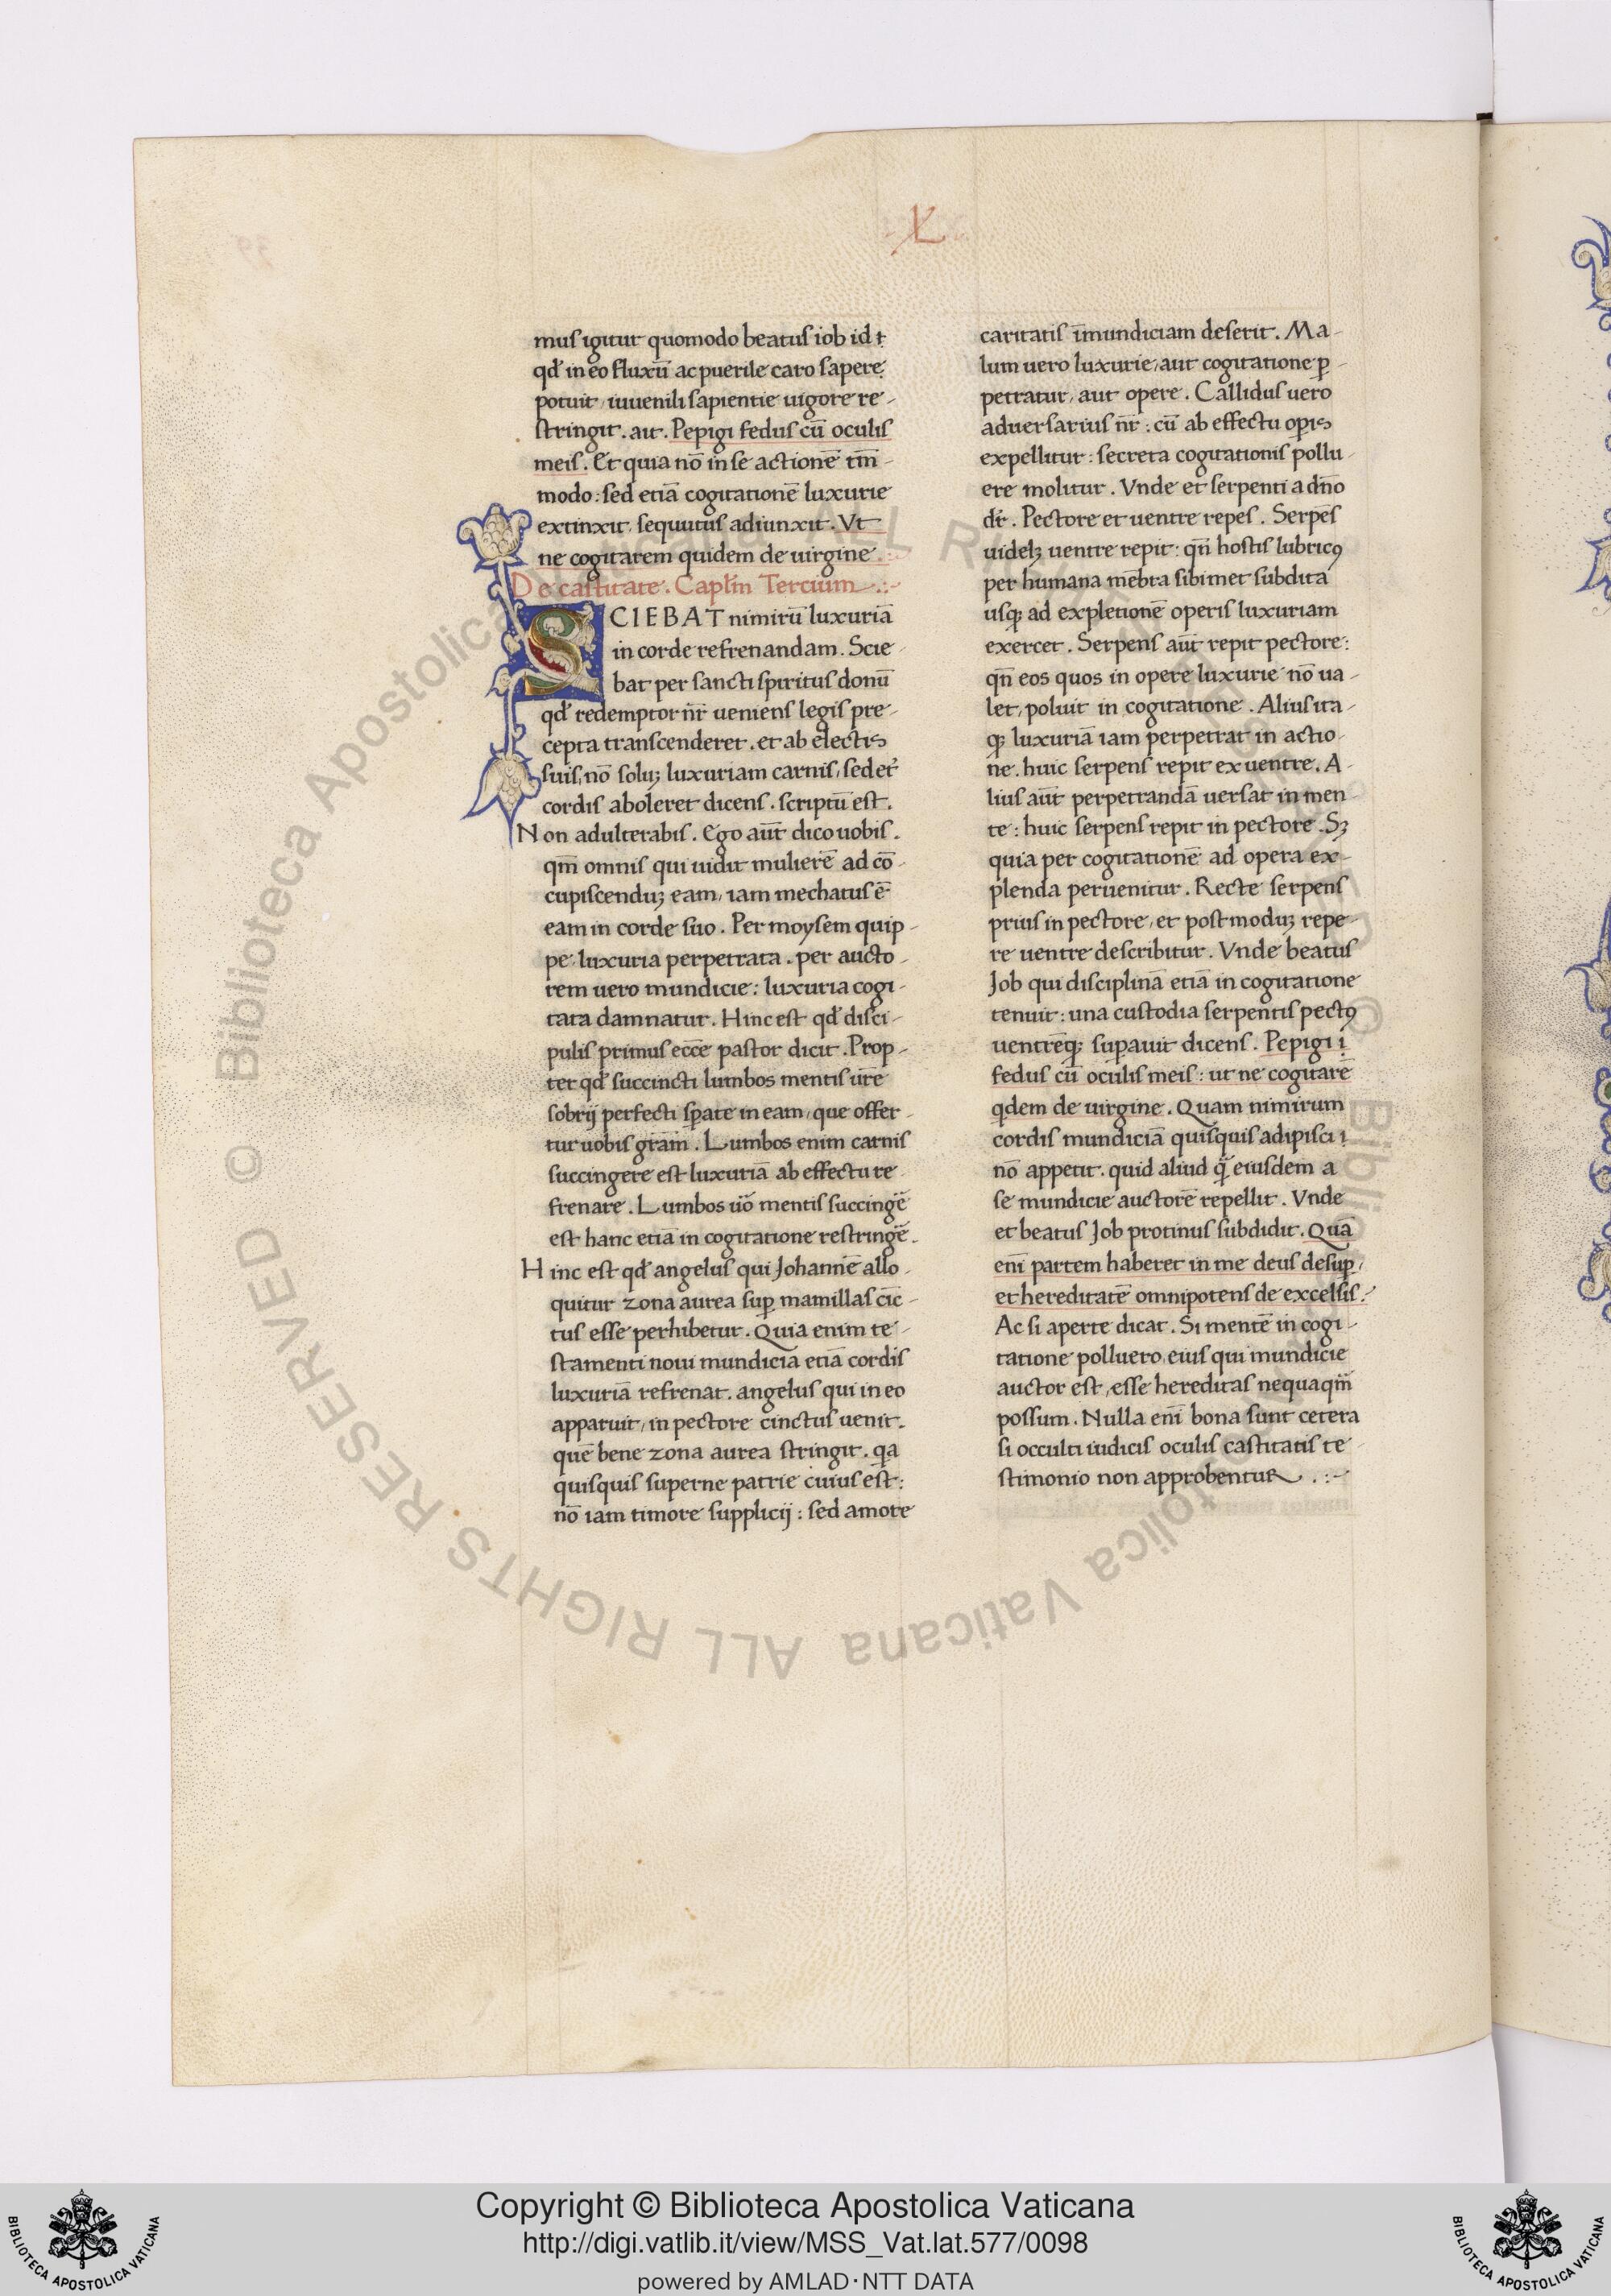 XL
mus igitur quomodo beatus iob id
qď in eo fluxū ac puerile caro sapere
potuit, iuuenili sapientie uigore re-
stringit. ait. Pepigi fedus cū oculis
meis. Et quia nō in se actionē tm̄
modo: sed etiā cogitationē luxurie
extinxit, sequutus adiunxit. Vt
ne cogitarem quidem de uirgine.
De castitate. Capl̄m Tercium
SCIEBAT nimirū luxuriā
in corde refrenandam. Scie-
bat per sancti spiritus donū
qď redemptor nr̄ ueniens legis pre-
cepta transcenderet. et ab electis
suis, nō soluꝫ luxuriam carnis, sed et
cordis aboleret dicens. scriptū est.
Non adulterabis. Ego aūt dico uobis.
qm̄ omnis qui uidit mulierē ad cō-
cupiscenduꝫ eam, iam mechatus ē
eam in corde suo. Per moysem quip-
pe luxuria perpetrata. per aucto-
rem uero mundicie: luxuria cogi-
tata damnatur. Hinc est qď disci-
pulis primus ecc̄e pastor dicit. Prop-
ter qď succincti lumbos mentis ur̄e
sobrij perfecti sꝑate in eam, que offer-
tur uobis grām. Lumbos enim carnis
succingere est luxuriā ab effectu re
frenare. Lumbos uō mentis succingē
est hanc etiā in cogitatione restringē.
Hinc est qď angelus qui Johannē allo-
quitur zona aurea suꝑ mamillas cīc-
tus esse perhibetur. Quia enim te-
stamenti noui mundicia etiā cordis
luxuriā refrenat. angelus qui in eo
apparuit, in pectore cinctus uenit.
quē bene zona aurea stringit. qa
quisquis superne patrie ciuis est:
nō iam timore supplicij: sed amore
caritatis īmundiciam deserit. Ma-
lum uero luxurie, aut cogitatione ꝑ-
petratur, aut opere. Callidus uero
aduersarius nr̄: cū ab effectu oꝑis
expellitur: secreta cogitationis pollu-
ere molitur. Vnde et serpenti a dn̄o
dr̄. Pectore et uentre repes. Serpēs
uidelꝫ uentre repit: qn̄ hostis lubricꝯ
per humana mēbra sibimet subdita
usqꝫ ad expletionē operis luxuriam
exercet. Serpens aūt repit pectore:
qn̄ eos quos in opere luxurie nō ua-
let, poluit in cogitatione. Alius ita-
qꝫ luxuriā iam perpetrat in actio-
ne. huic serpens repit ex uentre. A-
lius aūt perpetrandā uersat in men
te: huic serpens repit in pectore. Sꝫ
quia per cogitationē ad opera ex-
plenda peruenitur. Recte serpens
prius in pectore, et postmoduꝫ repe-
re uentre describitur. Vnde beatus
Job qui disciplinā etiā in cogitatione
tenuit: una custodia serpentis pectꝯ
uentrēqꝫ suꝑauit dicens. Pepigi
fedus cū oculis meis: ut ne cogitarē
qdem de uirgine. Quam nimirum
cordis mundiciā quisquis adipisci
nō appetit. quid aliud q̄ eiusdem a
se mundicie auctorē repellit. Vnde
et beatus Job protinus subdidit. Quā
enī partem haberet in me deus desuꝑ,
et hereditatē omnipotens de excelsis.
Ac si aperte dicat. Si mentē in cogi-
tatione polluero, eius qui mundicie
auctor est, esse hereditas nequaqm̄
possum. Nulla enī bona sunt cetera
si occulti iudicis oculis castitatis te-
stimonio non approbentur.
© Biblioteca Apostolica Vaticana ALL RIGHTS RESERVED
Copyright © Biblioteca Apostolica Vaticana
http://digi.vatlib.it/view/MSS_Vat.lat.577/0098
powered by AMLAD·NTT DATA
BIBLIOTECA APOSTOLICA VATICANA
BIBLIOTECA APOSTOLICA VATICANA